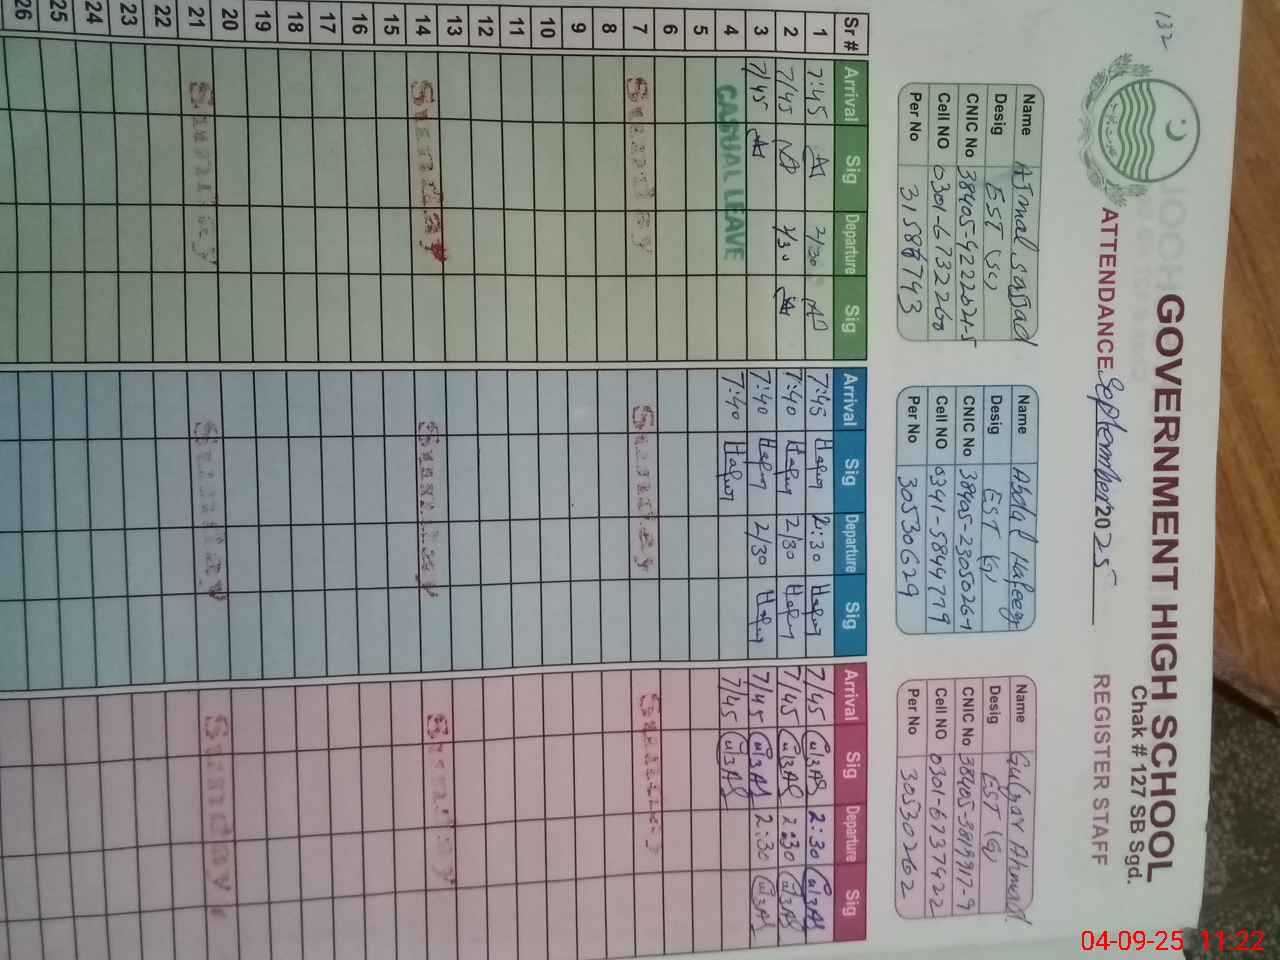 132
GOVERNMENT HIGH SCHOOL
Chak # 127 SB Sgd.
ATTENDANCE September 2025 REGISTER STAFF
Name Ajmal Sajjad
Desig EST (SC)
CNIC No 38405-9222021-5
Cell NO 0301-6732260
Per No
Name Abdul Hafeez
Desig EST (G)
CNIC No 38405-2305026-1
Cell NO 0341-5849779
Per No 30530629
Name Gulzar Ahmad
Desig EST (G)
CNIC No 38405-3819917-9
Cell NO 0301-6737422
Per No 30530262
Sr # Arrival Sig Departure Sig Arrival Sig Departure Sig Arrival Sig Departure Sig
1 7:45 2/30 7:45 Hafeez 2:30 Hafeez 7/45 2:30
2 7/45 2/30 7:40 Hafeez 2/30 Hafeez 7/45 2:30
3 7/45 7:40 Hafeez 2/30 Hafeez 7/45 2:30
4 CASUAL LEAVE 7:40 Hafeez 7/45
5
6
7 Sunday Sunday Sunday
8
9
10
11
12
13
14 Sunday Sunday Sunday
15
16
17
18
19
20
21 Sunday Sunday Sunday
22
23
24
25
26
04-09-25 11:22